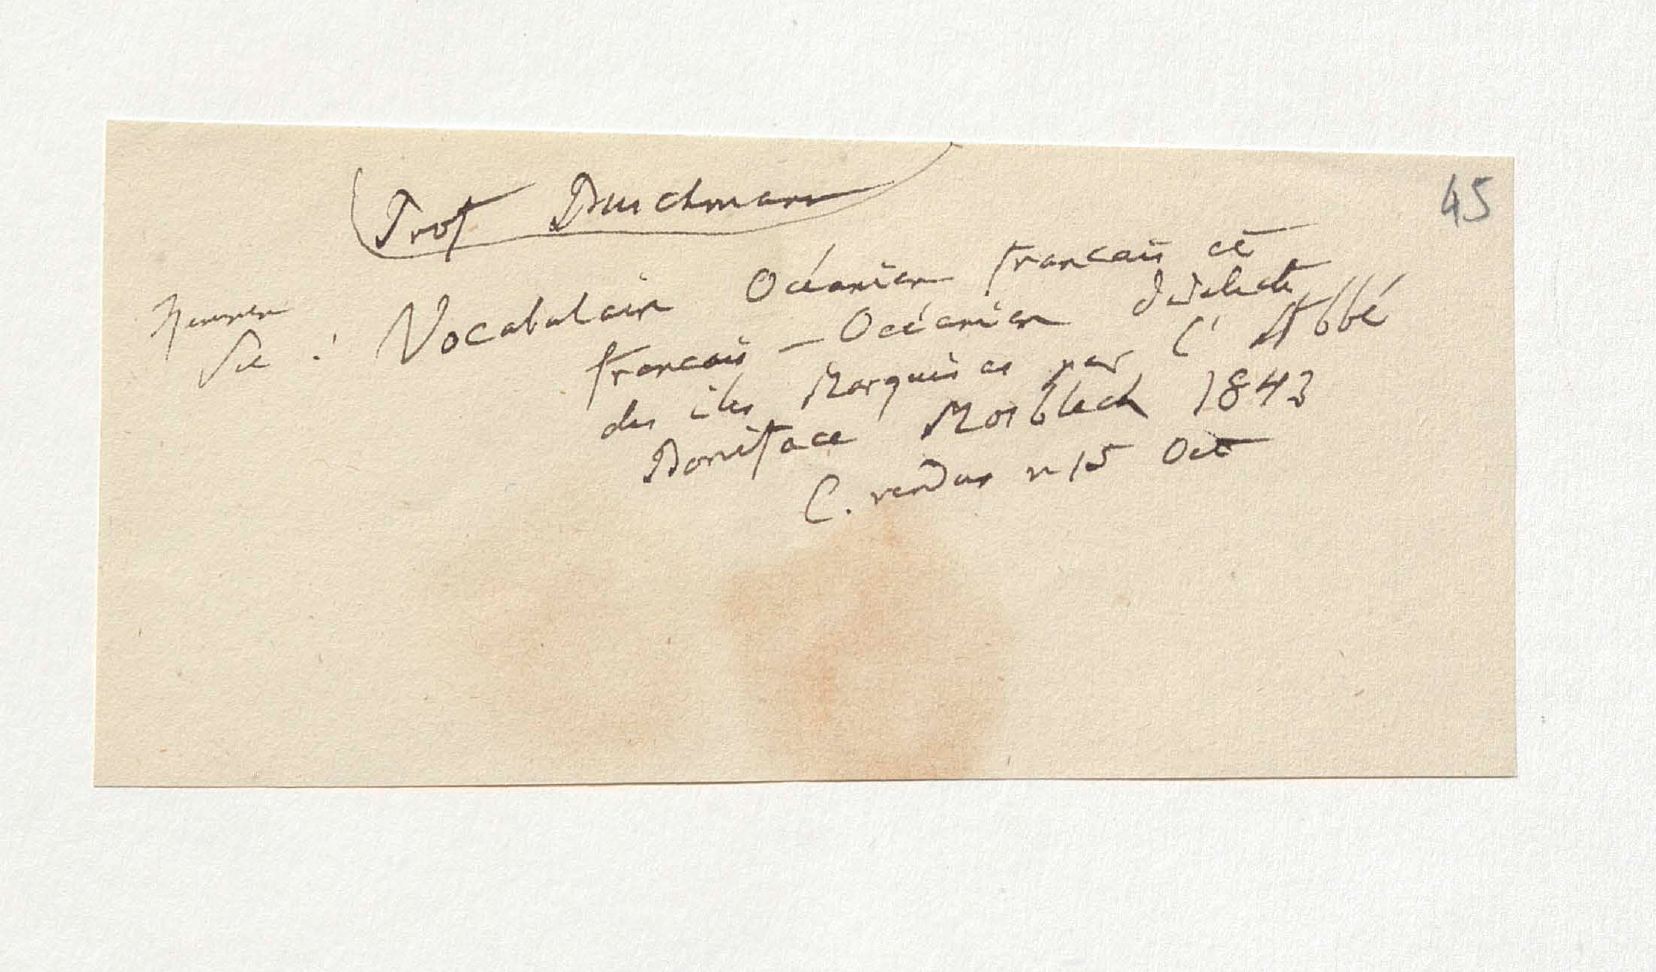 Prof Buschmann
45
Kennen
Sie: Vocabulair Océanien francais et
francais - Océanien dialecte
des iles Marquises par l'Abbé
Boniface Mosblech 1843
C. rendus n 15 Oct